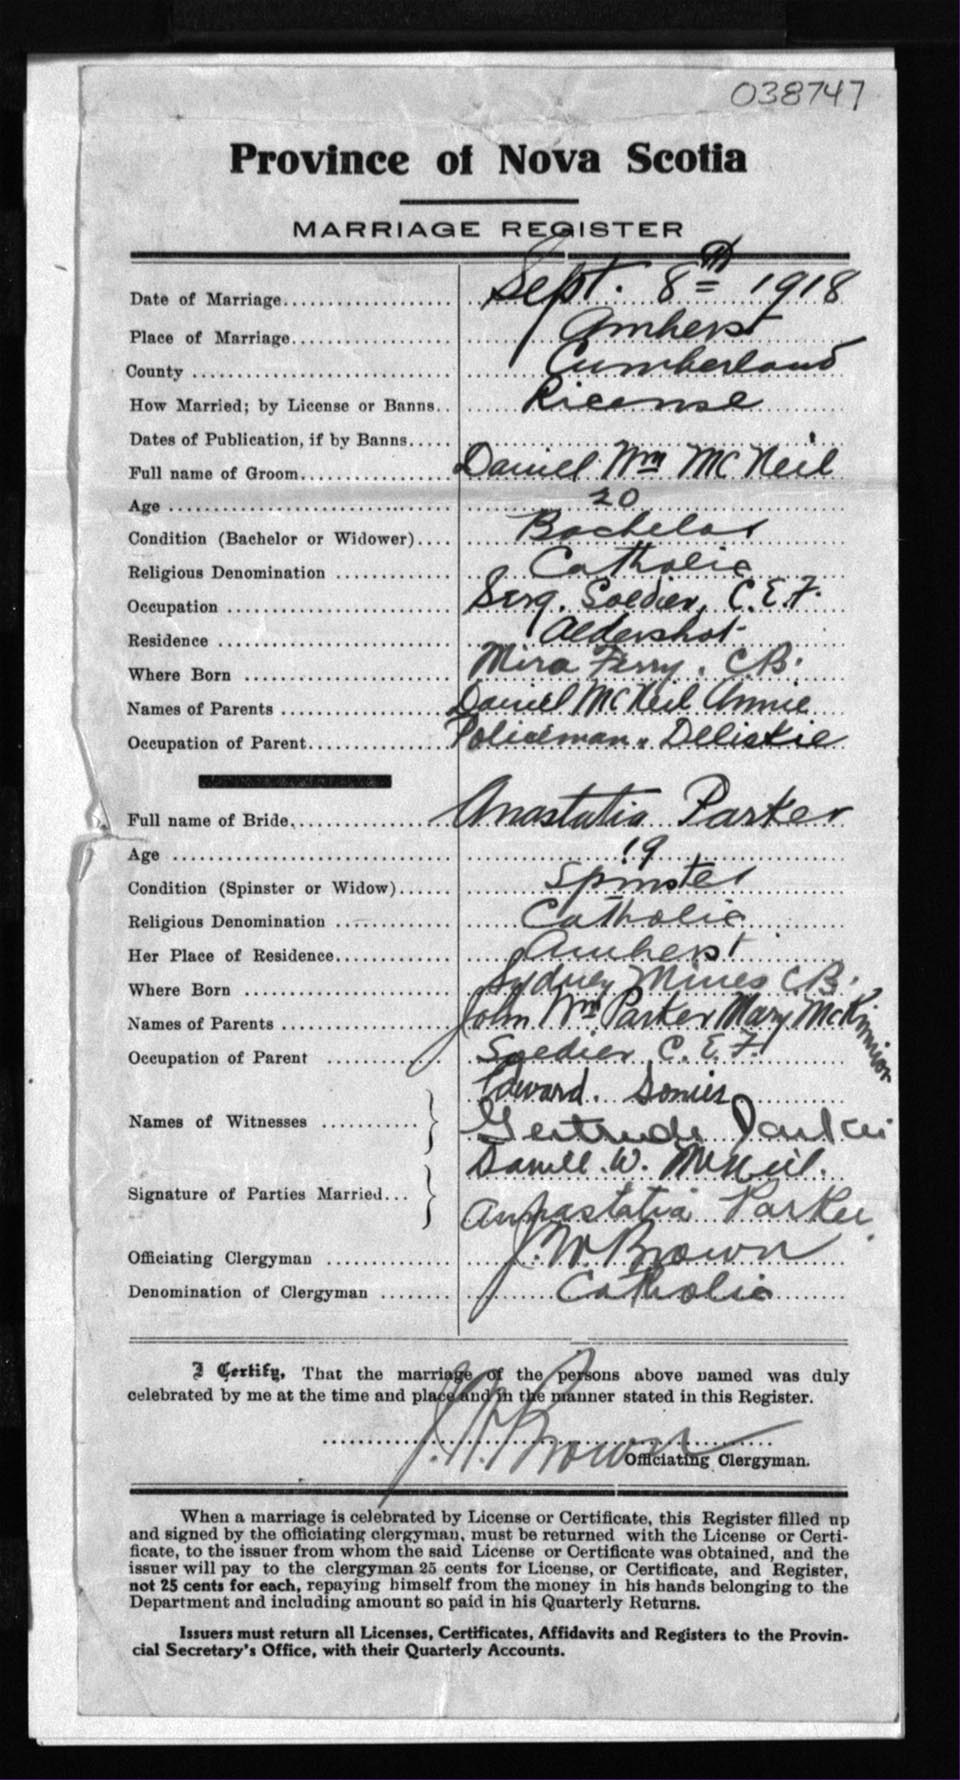 038747
Province of Nova Scotia
MARRIAGE REGISTER
Date of Marriage.................... Sept. 8th 1918
Place of Marriage................... Amherst
County .............................. Cumberland
How Married; by License or Banns.. License
Dates of Publication, if by Banns.....
Full name of Groom.................. Daniel Wm McNeil
Age .................................. 20
Condition (Bachelor or Widower).... Bachelor
Religious Denomination .............. Catholic
Occupation .......................... Serg. Soldier, C.E.F.
Residence ........................... Aldershot
Where Born ......................... Mira Ferry, C.B.
Names of Parents .................... Daniel McNeil Annie
Occupation of Parent................. Policeman. Deliskie
Full name of Bride................... Anastatia Parker
Age .................................. 19
Condition (Spinster or Widow)...... Spinster
Religious Denomination .............. Catholic
Her Place of Residence.............. Amherst
Where Born ......................... Sydney Mines C.B.
Names of Parents .................... John Wm Parker Mary McKinnion
Occupation of Parent ............ Soldier C.E.F.
Names of Witnesses ............ Edward
Gertrude Parker
Signature of Parties Married... Daniel. W. McNeil.
Annastatia Parker.
Officiating Clergyman ............... J. W. Brown
Denomination of Clergyman ........ Catholic
I Certify, That the marriage of the persons above named was duly
celebrated by me at the time and place and in the manner stated in this Register.
J. W. Brown
Officiating Clergyman.
When a marriage is celebrated by License or Certificate, this Register filled up
and signed by the officiating clergyman, must be returned with the License or Certi-
ficate, to the issuer from whom the said License or Certificate was obtained, and the
issuer will pay to the clergyman 25 cents for License, or Certificate, and Register,
not 25 cents for each, repaying himself from the money in his hands belonging to the
Department and including amount so paid in his Quarterly Returns.
Issuers must return all Licenses, Certificates, Affidavits and Registers to the Provin-
cial Secretary's Office, with their Quarterly Accounts.